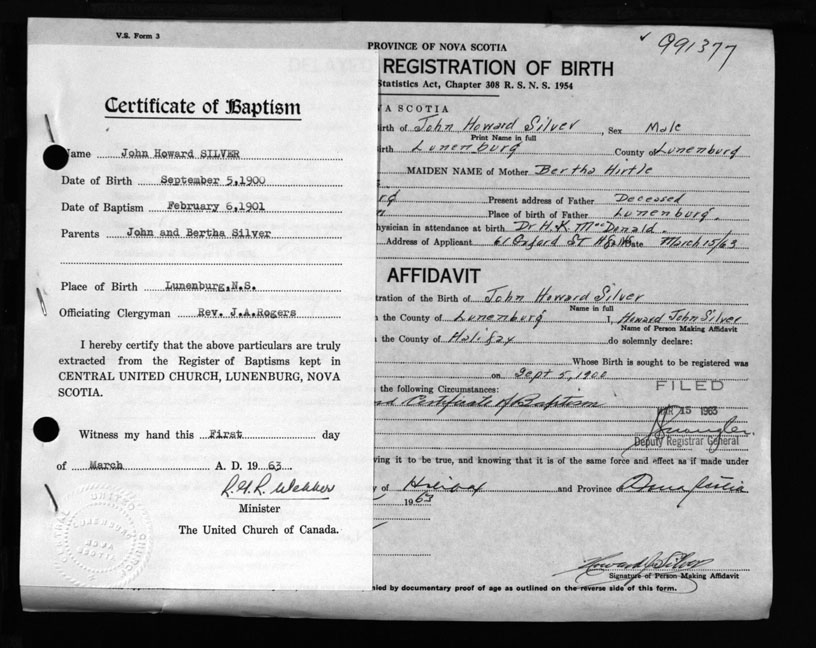 V.S. Form 3
Certificate of Baptism
Name John Howard SILVER
Date of Birth September 5,1900
Date of Baptism February 6,1901
Parents John and Bertha Silver
Place of Birth Lunenburg,N.S.
Officiating Clergyman Rev. J.A.Rogers
I hereby certify that the above particulars are truly
extracted from the Register of Baptisms kept in
CENTRAL UNITED CHURCH, LUNENBURG, NOVA
SCOTIA.
Witness my hand this First day
of March A. D. 19 63
Minister
The United Church of Canada.
991377
PROVINCE OF NOVA SCOTIA
REGISTRATION OF BIRTH
Statistics Act, Chapter 308 R. S. N. S. 1954
VA SCOTIA
irth of John Howard Silver, Sex Male
Print Name in full
irth Lunenburg County of Lunenburg
MAIDEN NAME of Mother Bertha Hirtle
Present address of Father Deceased
Place of birth of Father Lunenburg.
hysician in attendance at birth Dr. H. K. MacDonald.
Address of Applicant 61 Oxford ST Date March 15/63
AFFIDAVIT
tration of the Birth of John Howard Silver
Name in full
the County of Lunenburg I, Howard John Silver
Name of Person Making Affidavit
the County of Halifax do solemnly declare:
Whose Birth is sought to be registered was
on Sept 5, 1900
the following Circumstances:
Certificate of Baptism
FILED
15 1963
Deputy Registrar General
ving it to be true, and knowing that it is of the same force and effect as if made under
y of Halifax and Province of Nova Scotia
1963
Howard J Silver
Signature of Person Making Affidavit
nied by documentary proof of age as outlined on the reverse side of this form.